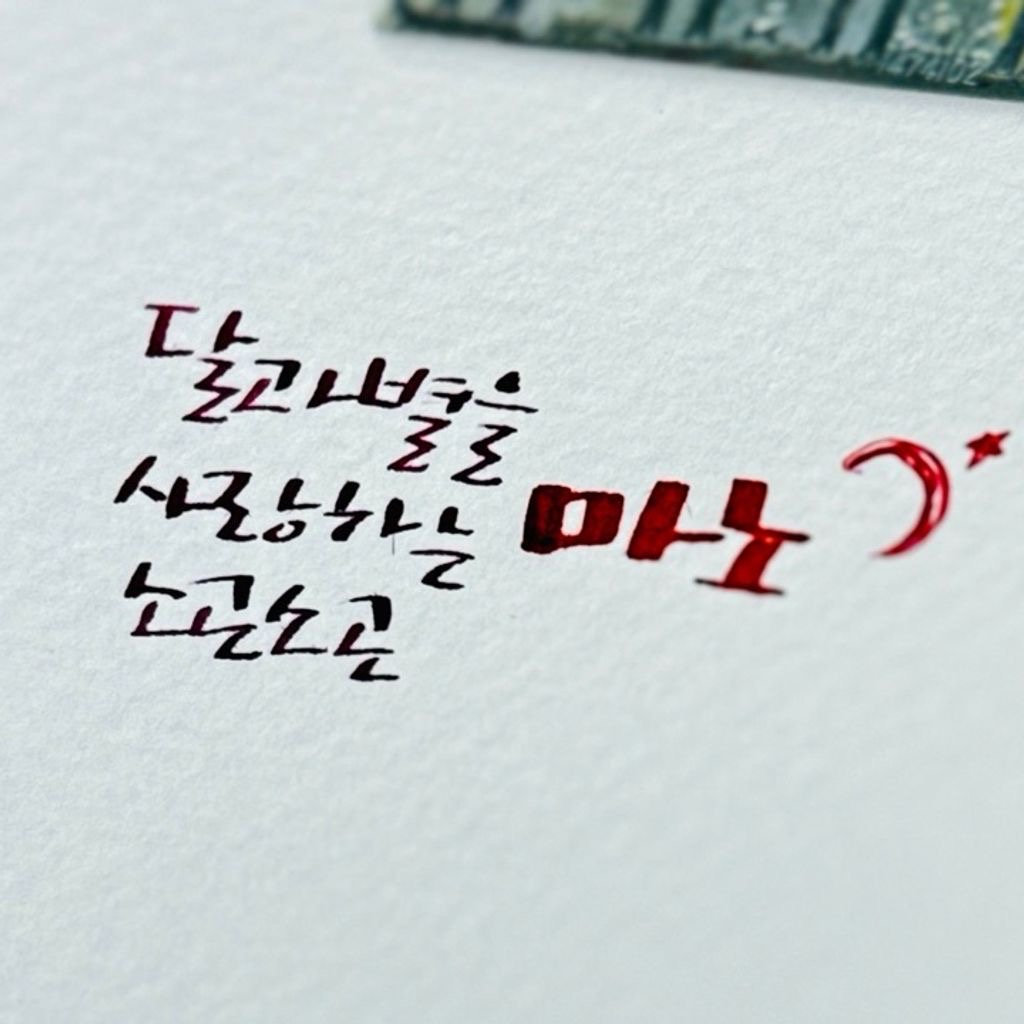 달과별을
사랑하는 마노
소곤소곤